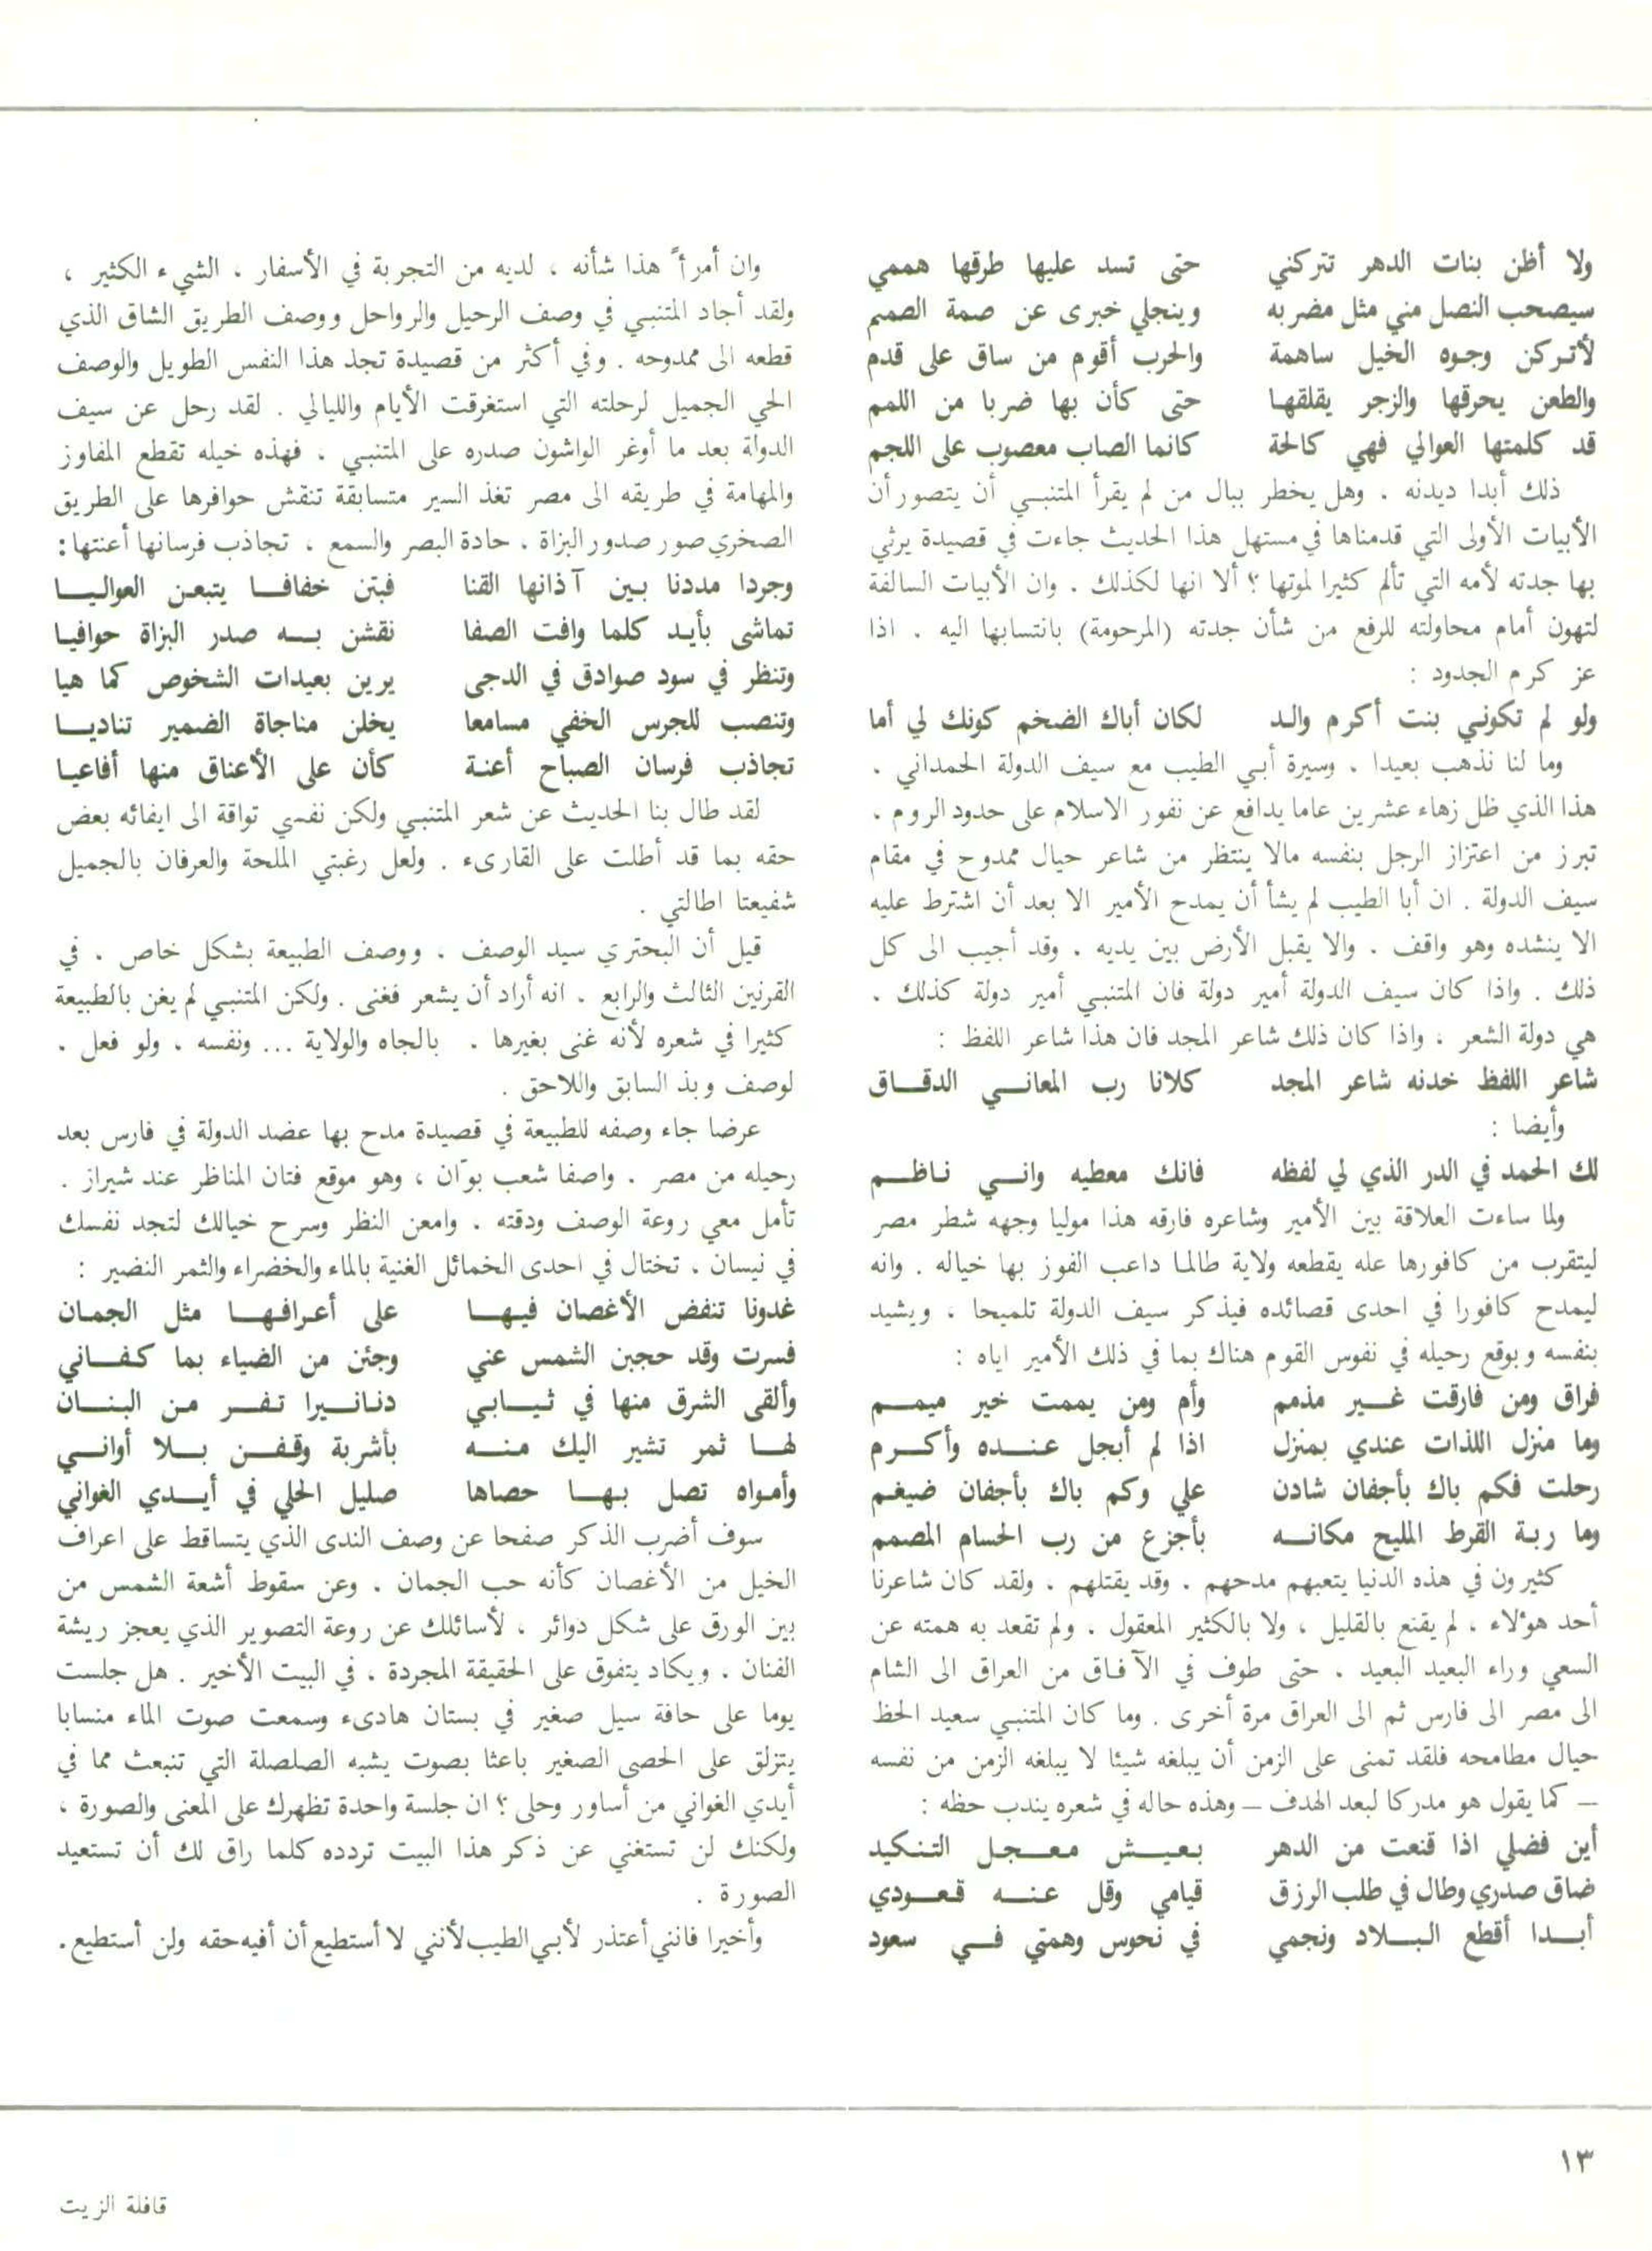 ولا أظن بنات الدهر تتركني حتى تسد عليها طرقها هممي
سيصحب النصل مني مثل مضربه وينجلي خبرى عن صمة الصمم
لأتركن وجوه الخيل ساهمة والحرب أقوم من ساق على قدم
والطعن يحرقها والزجر يقلقها حتى كأن بها ضربا من اللمم
قد كلمتها العوالي فهي كالحة كانما الصاب معصوب على اللجم
ذلك أبدا ديدنه . وهل يخطر ببال من لم يقرأ المتنبي أن يتصور أن
الأبيات الأولى التي قدمناها في مستهل هذا الحديث جاءت في قصيدة يرثي
بها جدته لأمه التي تألم كثيرا لموتها ؟ ألا انها لكذلك . وان الأبيات السالفة
لتهون أمام محاولته للرفع من شأن جدته (المرحومة) بانتسابها اليه . اذا
عز كرم الجدود :
ولو لم تكوني بنت أكرم والد لكان أباك الضخم كونك لي أما
وما لنا نذهب بعيدا . وسيرة أبي الطيب مع سيف الدولة الحمداني .
هذا الذي ظل زهاء عشرين عاما يدافع عن نفور الاسلام على حدود الروم .
تبرز من اعتزاز الرجل بنفسه مالا ينتظر من شاعر حيال ممدوح في مقام
سيف الدولة . ان أبا الطيب لم يشأ أن يمدح الأمير الا بعد أن اشترط عليه
الا ينشده وهو واقف . والا يقبل الأرض بين يديه . وقد أجيب الى كل
ذلك . واذا كان سيف الدولة أمير دولة فان المتنبي أمير دولة كذلك .
هي دولة الشعر ، واذا كان ذلك شاعر المجد فان هذا شاعر اللفظ :
شاعر اللفظ خدنه شاعر المجد كلانا رب المعاني الدقاق
وأيضا :
لك الحمد في الدر الذي لي لفظه فانك معطيه واني ناظم
ولما ساءت العلاقة بين الأمير وشاعره فارقه هذا موليا وجهه شطر مصر
ليتقرب من كافورها عله يقطعه ولاية طالما داعب الفوز بها خياله . وانه
ليمدح كافورا في احدى قصائده فيذكر سيف الدولة تلميحا ، ويشيد
بنفسه وبوقع رحيله في نفوس القوم هناك بما في ذلك الأمير اياه :
فراق ومن فارقت غير مذمم وأم ومن يممت خير ميمم
وما منزل اللذات عندي بمنزل اذا لم أبجل عنده وأكرم
رحلت فكم باك بأجفان شادن علي وكم باك بأجفان ضيغم
وما ربة القرط المليح مكانه بأجزع من رب الحسام المصمم
كثيرون في هذه الدنيا يتعبهم مدحهم . وقد يقتلهم . ولقد كان شاعرنا
أحد هؤلاء ، لم يقنع بالقليل ، ولا بالكثير المعقول . ولم تقعد به همته عن
السعي وراء البعيد البعيد . حتى طوف في الآفاق من العراق الى الشام
الى مصر الى فارس ثم الى العراق مرة أخرى . وما كان المتنبي سعيد الحظ
حيال مطامحه فلقد تمنى على الزمن أن يبلغه شيئا لا يبلغه الزمن من نفسه
— كما يقول هو مدركا لبعد الهدف — وهذه حاله في شعره يندب حظه :
أين فضلي اذا قنعت من الدهر بعيش معجل التنكيد
ضاق صدري وطال في طلب الرزق قيامي وقل عنه قعودي
أبدا أقطع البلاد ونجمي في نحوس وهمتي في سعود
وان أمرأ هذا شأنه ، لديه من التجربة في الأسفار ، الشيء الكثير ،
ولقد أجاد المتنبي في وصف الرحيل والرواحل ووصف الطريق الشاق الذي
قطعه الى ممدوحه . وفي أكثر من قصيدة تجد هذا النفس الطويل والوصف
الحي الجميل لرحلته التي استغرقت الأيام والليالي . لقد رحل عن سيف
الدولة بعد ما أوغر الواشون صدره على المتنبي ، فهذه خيله تقطع المفاوز
والمهامة في طريقه الى مصر تغذ السير متسابقة تنقش حوافرها على الطريق
الصخري صور صدور البزاة ، حادة البصر والسمع ، تجاذب فرسانها أعنتها :
وجردا مددنا بين آذانها القنا فبتن خفافا يتبعن العواليا
تماشى بأيد كلما وافت الصفا نقشن به صدر البزاة حوافيا
وتنظر في سود صوادق في الدجى يرين بعيدات الشخوص كما هيا
وتنصب للجرس الخفي مسامعا يخلن مناجاة الضمير تناديا
تجاذب فرسان الصباح أعنة كأن على الأعناق منها أفاعيا
لقد طال بنا الحديث عن شعر المتنبي ولكن نفسي تواقة الى ايفائه بعض
حقه بما قد أطلت على القارىء . ولعل رغبتي الملحة والعرفان بالجميل
شفيعتا اطالتي .
قيل أن البحتري سيد الوصف ، ووصف الطبيعة بشكل خاص . في
القرنين الثالث والرابع . انه أراد أن يشعر فغنى . ولكن المتنبي لم يغن بالطبيعة
كثيرا في شعره لأنه غنى بغيرها . بالجاه والولاية ... ونفسه . ولو فعل .
لوصف وبذ السابق واللاحق .
عرضا جاء وصفه للطبيعة في قصيدة مدح بها عضد الدولة في فارس بعد
رحيله من مصر . واصفا شعب بوّان ، وهو موقع فتان المناظر عند شيراز .
تأمل معي روعة الوصف ودقته . وامعن النظر وسرح خيالك لتجد نفسك
في نيسان . تختال في احدى الخمائل الغنية بالماء والخضراء والثمر النضير :
غدونا تنفض الأغصان فيها على أعرافها مثل الجمان
فسرت وقد حجبن الشمس عني وجئن من الضياء بما كفاني
وألقى الشرق منها في ثيابي دنانيرا تفر من البنان
لها ثمر تشير اليك منه بأشربة وقفن بلا أواني
وأمواه تصل بها حصاها صليل الحلي في أيدي الغواني
سوف أضرب الذكر صفحا عن وصف الندى الذي يتساقط على اعراف
الخيل من الأغصان كأنه حب الجمان . وعن سقوط أشعة الشمس من
بين الورق على شكل دوائر ، لأسائلك عن روعة التصوير الذي يعجز ريشة
الفنان . ويكاد يتفوق على الحقيقة المجردة ، في البيت الأخير . هل جلست
يوما على حافة سيل صغير في بستان هادىء وسمعت صوت الماء منسابا
يتزلق على الحصى الصغير باعثا بصوت يشبه الصلصلة التي تنبعث مما في
أيدي الغواني من أساور وحلى ؟ ان جلسة واحدة تظهرك على المعنى والصورة ،
ولكنك لن تستغني عن ذكر هذا البيت تردده كلما راق لك أن تستعيد
الصورة .
وأخيرا فانني أعتذر لأبي الطيب لأنني لا أستطيع أن أفيه حقه ولن أستطيع .
١٣
قافلة الزيت